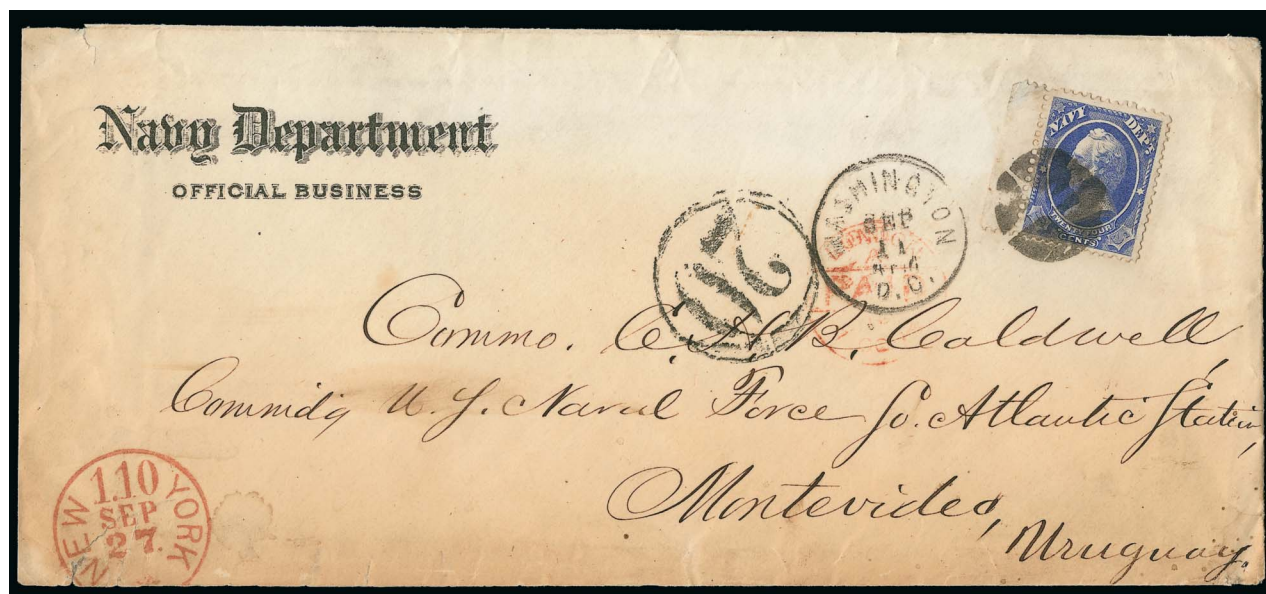 Navy Department
OFFICIAL BUSINESS
NAVY DEPT.
TWENTY FOUR
CENTS
WASHINGTON
SEP
11
D.C.
20
Commo. C. H. B. Caldwell,
Commdg U. S. Naval Force So. Atlantic Station,
Montevideo,
Uruguay.
NEW YORK
1.10
SEP
27